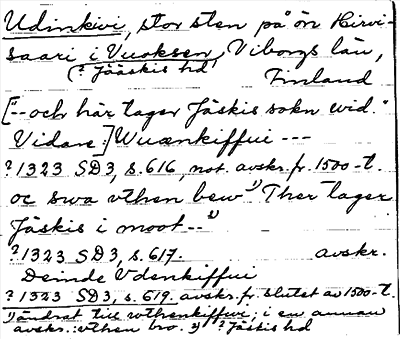 Udinkivi, stor sten på ön Hirvi-
saari i Vuoksen, Viborgs län,
(? Jääskis hd Finland
["--och här tager Jäskis sokn wid."
Vidare:] Wuænkiffui ---
? 1323 SD3, s. 616, not. avskr. fr. 1500-t.
oc swa vthen bew ¹) Ther tager
Jäskis i moot -- ²)
? 1323 SD3, s. 617. avskr.
Deinde Vdenkiffui
? 1323 SD3, s. 619. avskr. fr. slutet av 1500-t.
¹) ändrat till vthenkiffui; i en annan
avskr.: vthen bro. ²) ? Jäskis hd